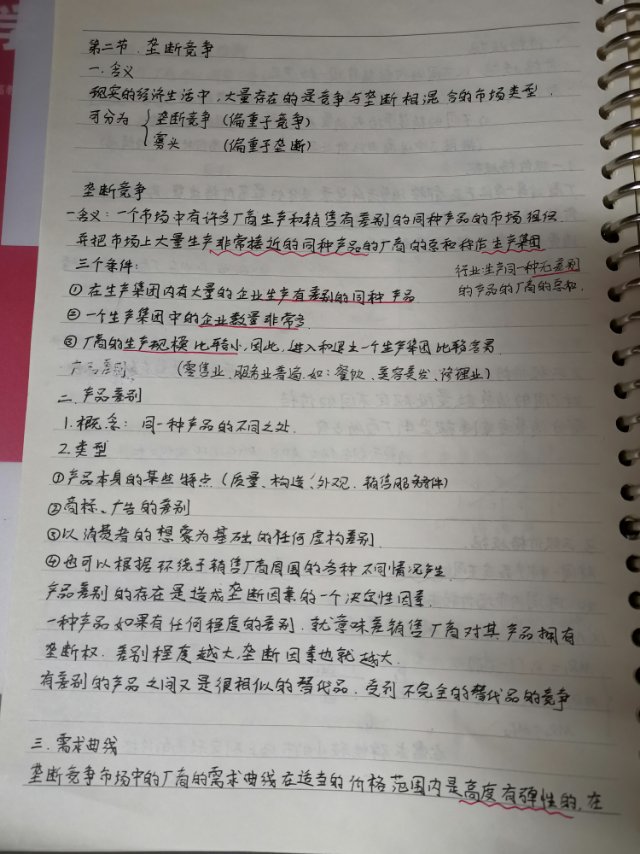 第二节. 垄断竞争
一. 含义
现实的经济生活中, 大量存在的是竞争与垄断相混合的市场类型.
可分为 { 垄断竞争 (偏重于竞争)
寡头 (偏重于垄断)
垄断竞争
一含义: 一个市场中有许多厂商生产和销售有差别的同种产品的市场组织.
并把市场上大量生产非常接近的同种产品的厂商的总和称作生产集团
三个条件:
行业:生产同一种无差别的产品的厂商的总和.
① 在生产集团内有大量的企业生产有差别的同种产品
② 一个生产集团中的企业数量非常多.
③ 厂商的生产规模比较小, 因此, 进入和退出一个生产集团比较容易.
产品差别. (零售业、服务业普遍. 如: 餐饮、美容美发、修理业)
二. 产品差别
1. 概念: 同一种产品的不同之处.
2. 类型
①产品本身的某些特点 (质量、构造、外观、销售服务条件)
②商标、广告的差别
③以消费者的想象为基础的任何虚构差别.
④也可以根据环绕于销售厂商周围的各种不同情况产生.
产品差别的存在是造成垄断因素的一个决定性因素.
一种产品如果有任何程度的差别. 就意味着销售厂商对其产品拥有
垄断权. 差别程度越大, 垄断因素也就越大.
有差别的产品之间又是很相似的替代品. 受到不完全的替代品的竞争
三. 需求曲线
垄断竞争市场中的厂商的需求曲线在适当的价格范围内是高度有弹性的, 在